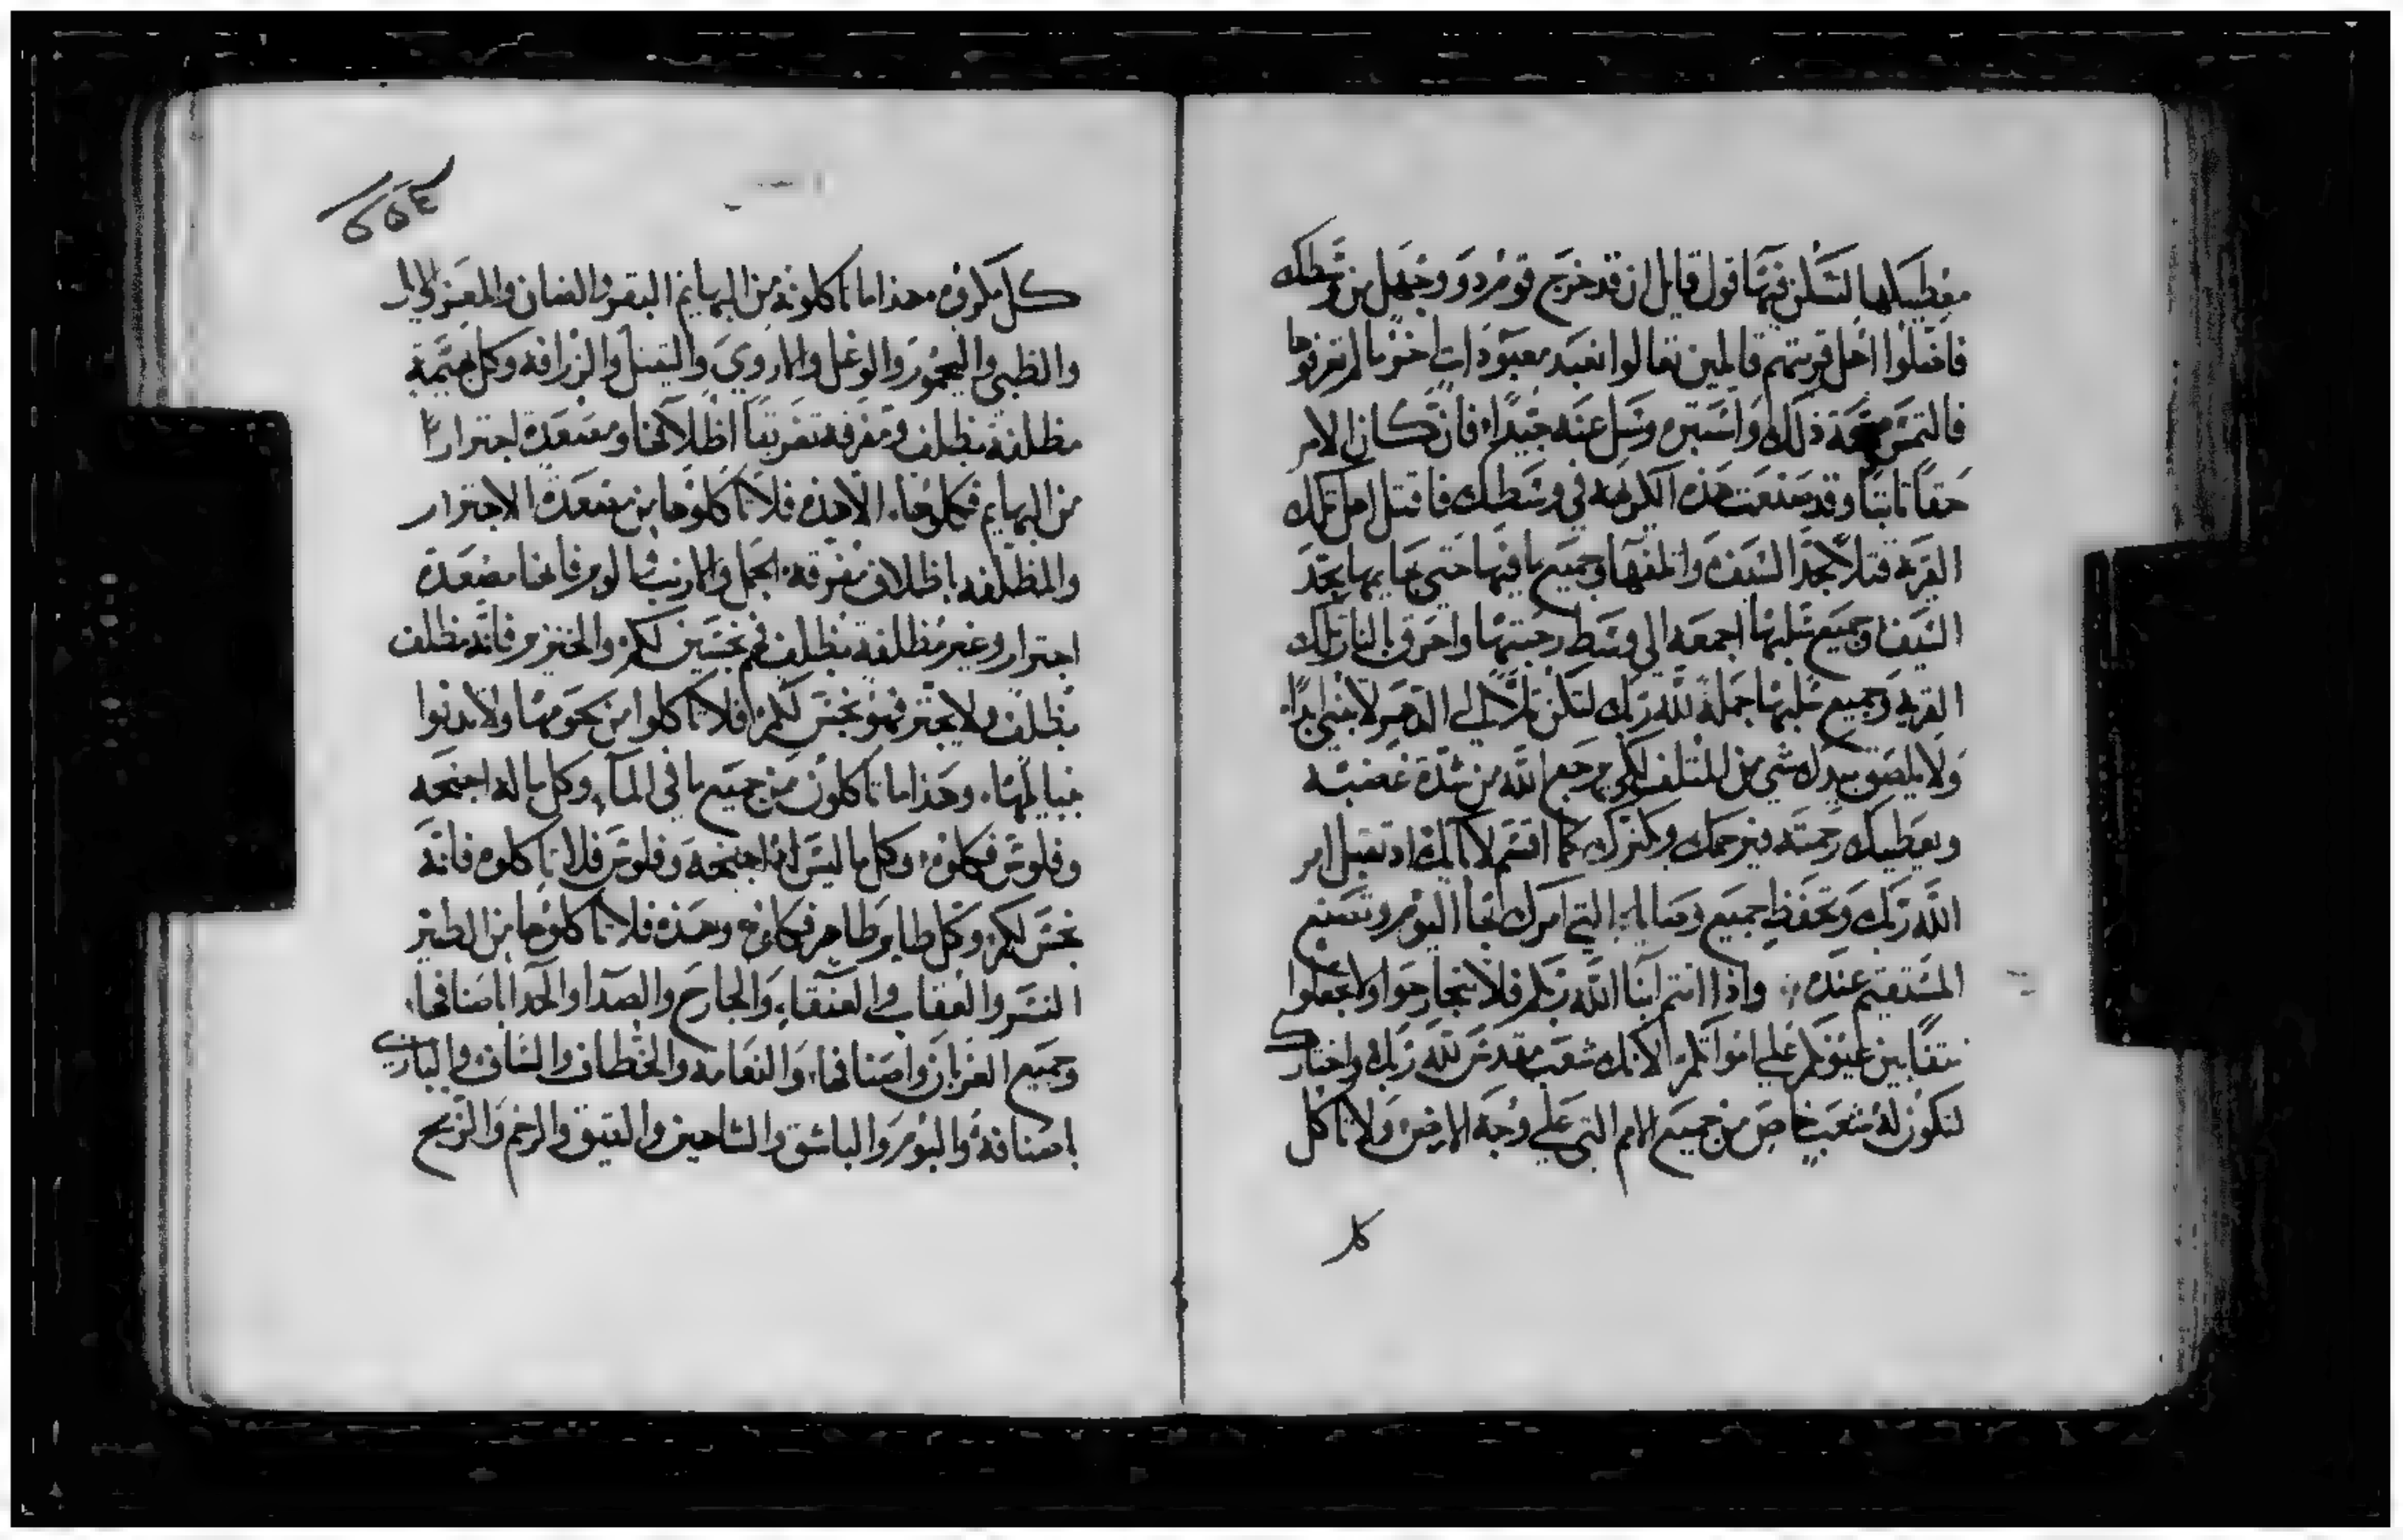 معطيكها لتسكن فيها قول قايل ان قد خرج قوم ردو وجهل من وسطك
فاضلوا اهل قريتهم قايلين تعالوا نعبد معبودات اخر ما لم تعرفوها
فالتمس صحة ذلك واستبره وسل عنه جيدا فان كان الامر
حقا ثابتا وقد صنعت هذه الكريهه في وسطك فاقتل اهل تلك
القرية قتلا بحد السيف واتلفها وجميع ما فيها حتي بهايمها بحد
السيف وجميع سلبها اجمعه الي وسط رحبتها واحرق بالنار تلك
القرية وجميع سلبها جملة لله ربك لتكن تلا الي الدهر لا تبني ابدا
ولا يلصق بيدك شي من المتلف لكي يرجع الله من شدة غضبه
ويعطيك رحمته ويرحمك ويكثرك كما اقسم لابايك اذ تقبل امر
الله ربك وتحفظ جميع وصاياه التي امرك بها اليوم وتصنع
المستقيم عنده واذا انتم ابنا الله ربكم فلا تتجارحوا ولا تجعلوا
نتفا بين عينيكم علي امواتكم لانك شعب مقدس لله ربك واختارك
لتكون له شعب خاص من جميع الامم التي علي وجه الارض ولا تاكل
كل
كل مكروه هذا ما تاكلونه من البهايم البقر والضان والمعز والايل
والظبي واليحمور والوعل والاروي والتيتل والزرافة وكل بهيمة
مظلفة بظلف ومفرقه تفريقا اظلافها ومصعدة اجترارا
من البهايم فكلوها الا هذه فلا تاكلوها من مصعدة الاجترار
والمظلفه باظلاف مفرقه الجمل والارنب والوبر فانها مصعدة
اجترار وغير مظلفة بظلف فهم نجسين لكم والخنزير فانه مظلف
بظلف ولا يجتر فهو نجس لكم فلا تاكلوا من لحومها ولا تدنوا
نبايلها وهذا ما تاكلون من جميع ما في الماء وكل ما له اجنحه
وفلوس فكلوه وكل ما ليس له اجنحه وفلوس فلا تاكلوه فانه
نجس لكم وكل طاير طاهر فكلوه وهذه فلا تاكلوها من الطير
النسر والعقاب والعنقاء والجارح والصدا والحدا باصنافها
وجميع الغربان واصنافها والنعامه والخطاف والساف والبازي
باصنافه والبوم والباشق والشاهين والقيق والرخم والزيح